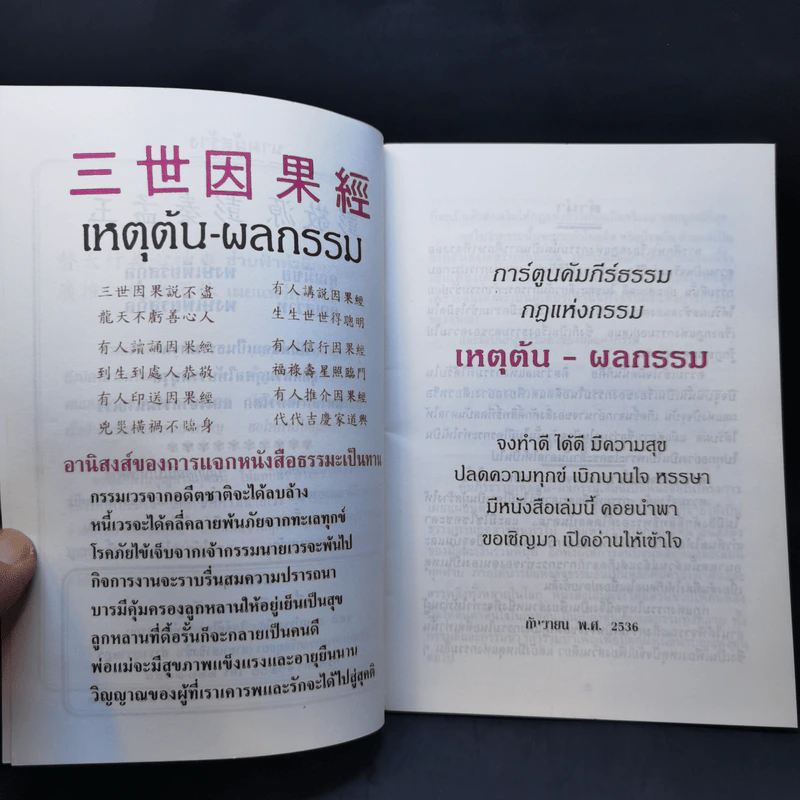 三世因果經
เหตุต้น-ผลกรรม
三世因果説不盡 有人講説因果經
龍天不虧善心人 生生世世得聰明
有人讀誦因果經 有人信行因果經
到生到處人恭敬 福祿壽星照臨門
有人印送因果經 有人推介因果經
免災橫禍不臨身 代代吉慶家道興
อานิสงส์ของการแจกหนังสือธรรมะเป็นทาน
กรรมเวรจากอดีตชาติจะได้ลบล้าง
หนี้เวรจะได้คลี่คลายพ้นภัยจากทะเลทุกข์
โรคภัยไข้เจ็บจากเจ้ากรรมนายเวรจะพ้นไป
กิจการงานจะราบรื่นสมความปรารถนา
บารมีคุ้มครองลูกหลานให้อยู่เย็นเป็นสุข
ลูกหลานที่ดื้อรั้นก็จะกลายเป็นคนดี
พ่อแม่จะมีสุขภาพแข็งแรงและอายุยืนนาน
วิญญาณของผู้ที่เราเคารพและรักจะได้ไปสู่สุคติ
การ์ตูนคัมภีร์ธรรม
กฎแห่งกรรม
เหตุต้น - ผลกรรม
จงทำดี ได้ดี มีความสุข
ปลดความทุกข์ เบิกบานใจ หรรษา
มีหนังสือเล่มนี้ คอยนำพา
ขอเชิญมา เปิดอ่านให้เข้าใจ
กันยายน พ.ศ. 2536